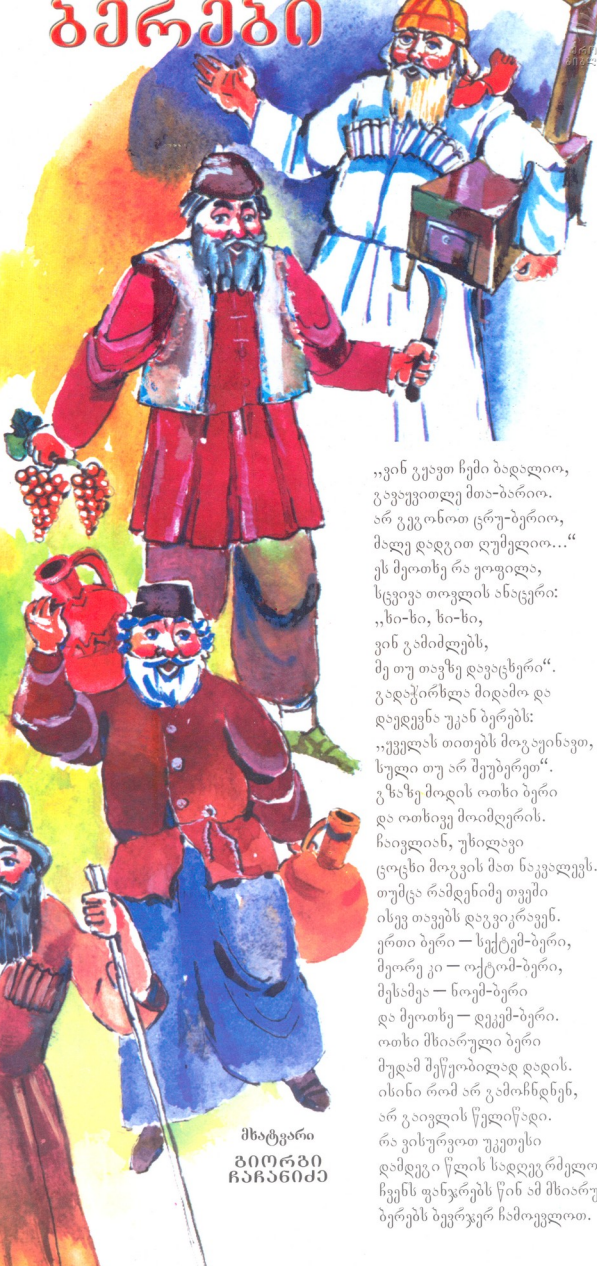 ბერები
„ვინ გყავთ ჩემი ბადალიო,
გავაყვითლე მთა-ბარიო.
არ გეგონოთ ცრუ-ბერიო,
მალე დადგით ღუმელიო...“
ეს მეოთხე რა ყოფილა,
სცვივა თოვლის ანაცერი:
„ხი-ხი, ხი-ხი,
ვინ გამიძლებს,
მე თუ თავზე დავაცხერი“.
გადაჭირხლა მიდამო და
დაედევნა უკან ბერებს:
„ყველას თითებს მოგაყინავთ,
სული თუ არ შეუბერეთ“.
გზაზე მოდის ოთხი ბერი
და ოთხივე მოიმღერის.
ჩაივლიან, უხილავი
ცოცხი მოგვის მათ ნაკვალევს.
თუმცა რამდენიმე თვეში
ისევ თავებს დაგვიკრავენ.
ერთი ბერი — სექტემ-ბერი,
მეორე კი — ოქტომ-ბერი,
მესამეა — ნოემ-ბერი
და მეოთხე — დეკემ-ბერი.
ოთხი მხიარული ბერი
მუდამ შეწყობილად დადის.
ისინი რომ არ გამოჩნდნენ,
არ გაივლის წელიწადი.
რა ვისურვოთ უკეთესი
დამდეგი წლის სადღეგრძელო
ჩვენს ფანჯრებს წინ ამ მხიარუ
ბერებს ბევრჯერ ჩამოევლოთ.
მხატვარი
გიორგი
ჩაჩანიძე